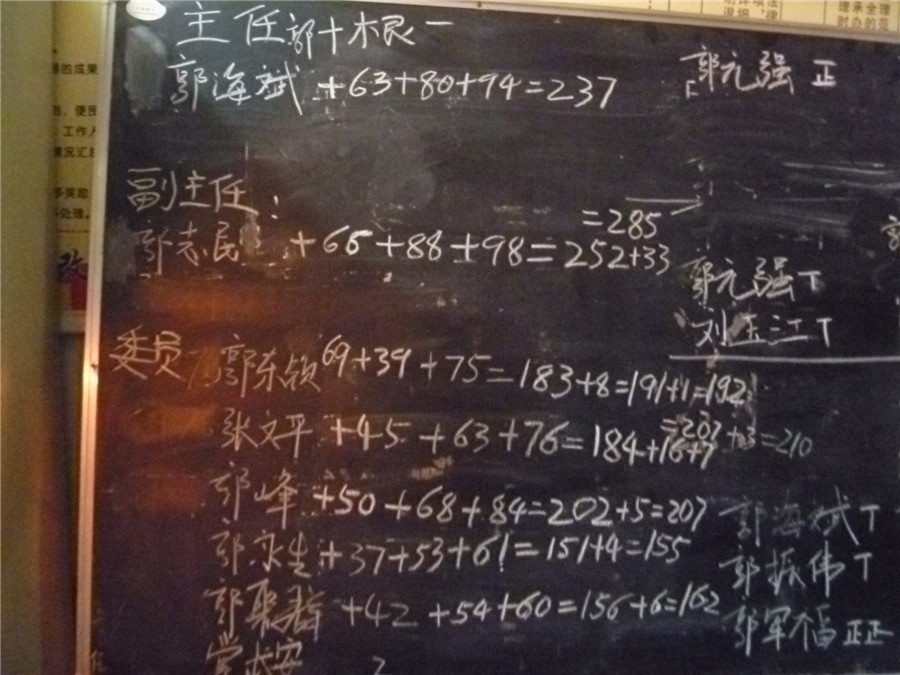 主任 郭十木民一
郭海斌 +63+80+94=237
郭元强 正
副主任:
=285
郭志民 +66+88+98=252+33
郭元强 T
刘玉江 T
委员 郭东锁 69+39+75=183+8=191+1=192
张文平 +45+63+76=184+16+7=207+3=210
郭峰 +50+68+84=202+5=207
郭永生 +37+53+61=151+4=155
郭聚群 +42+54+60=156+6=162
郭海斌 T
郭振伟 T
郭军福 正正
的成果
工作人
情况汇
处理。
改
理承全理
时办的范